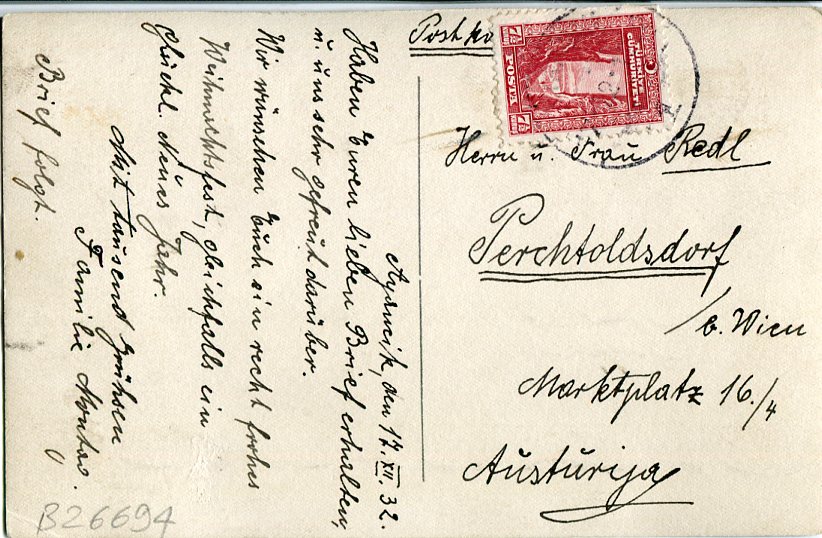 Ayancik, den 17. XII. 32.
Haben Euren lieben Brief erhalten,
u. uns sehr gefreut darüber.
Wir wünschen Euch ein recht frohes
Weihnachtsfest, gleichfalls ein
glückl. Neues Jahr.
Mit tausend Grüssen
Familie
Brief folgt.
B26694
TÜRKİYE
CÜMHURİYETİ
POSTA
7½
7½
Herrn u. Frau Redl
Perchtoldsdorf
/b. Wien
Marktplatz 16./4
Austürija